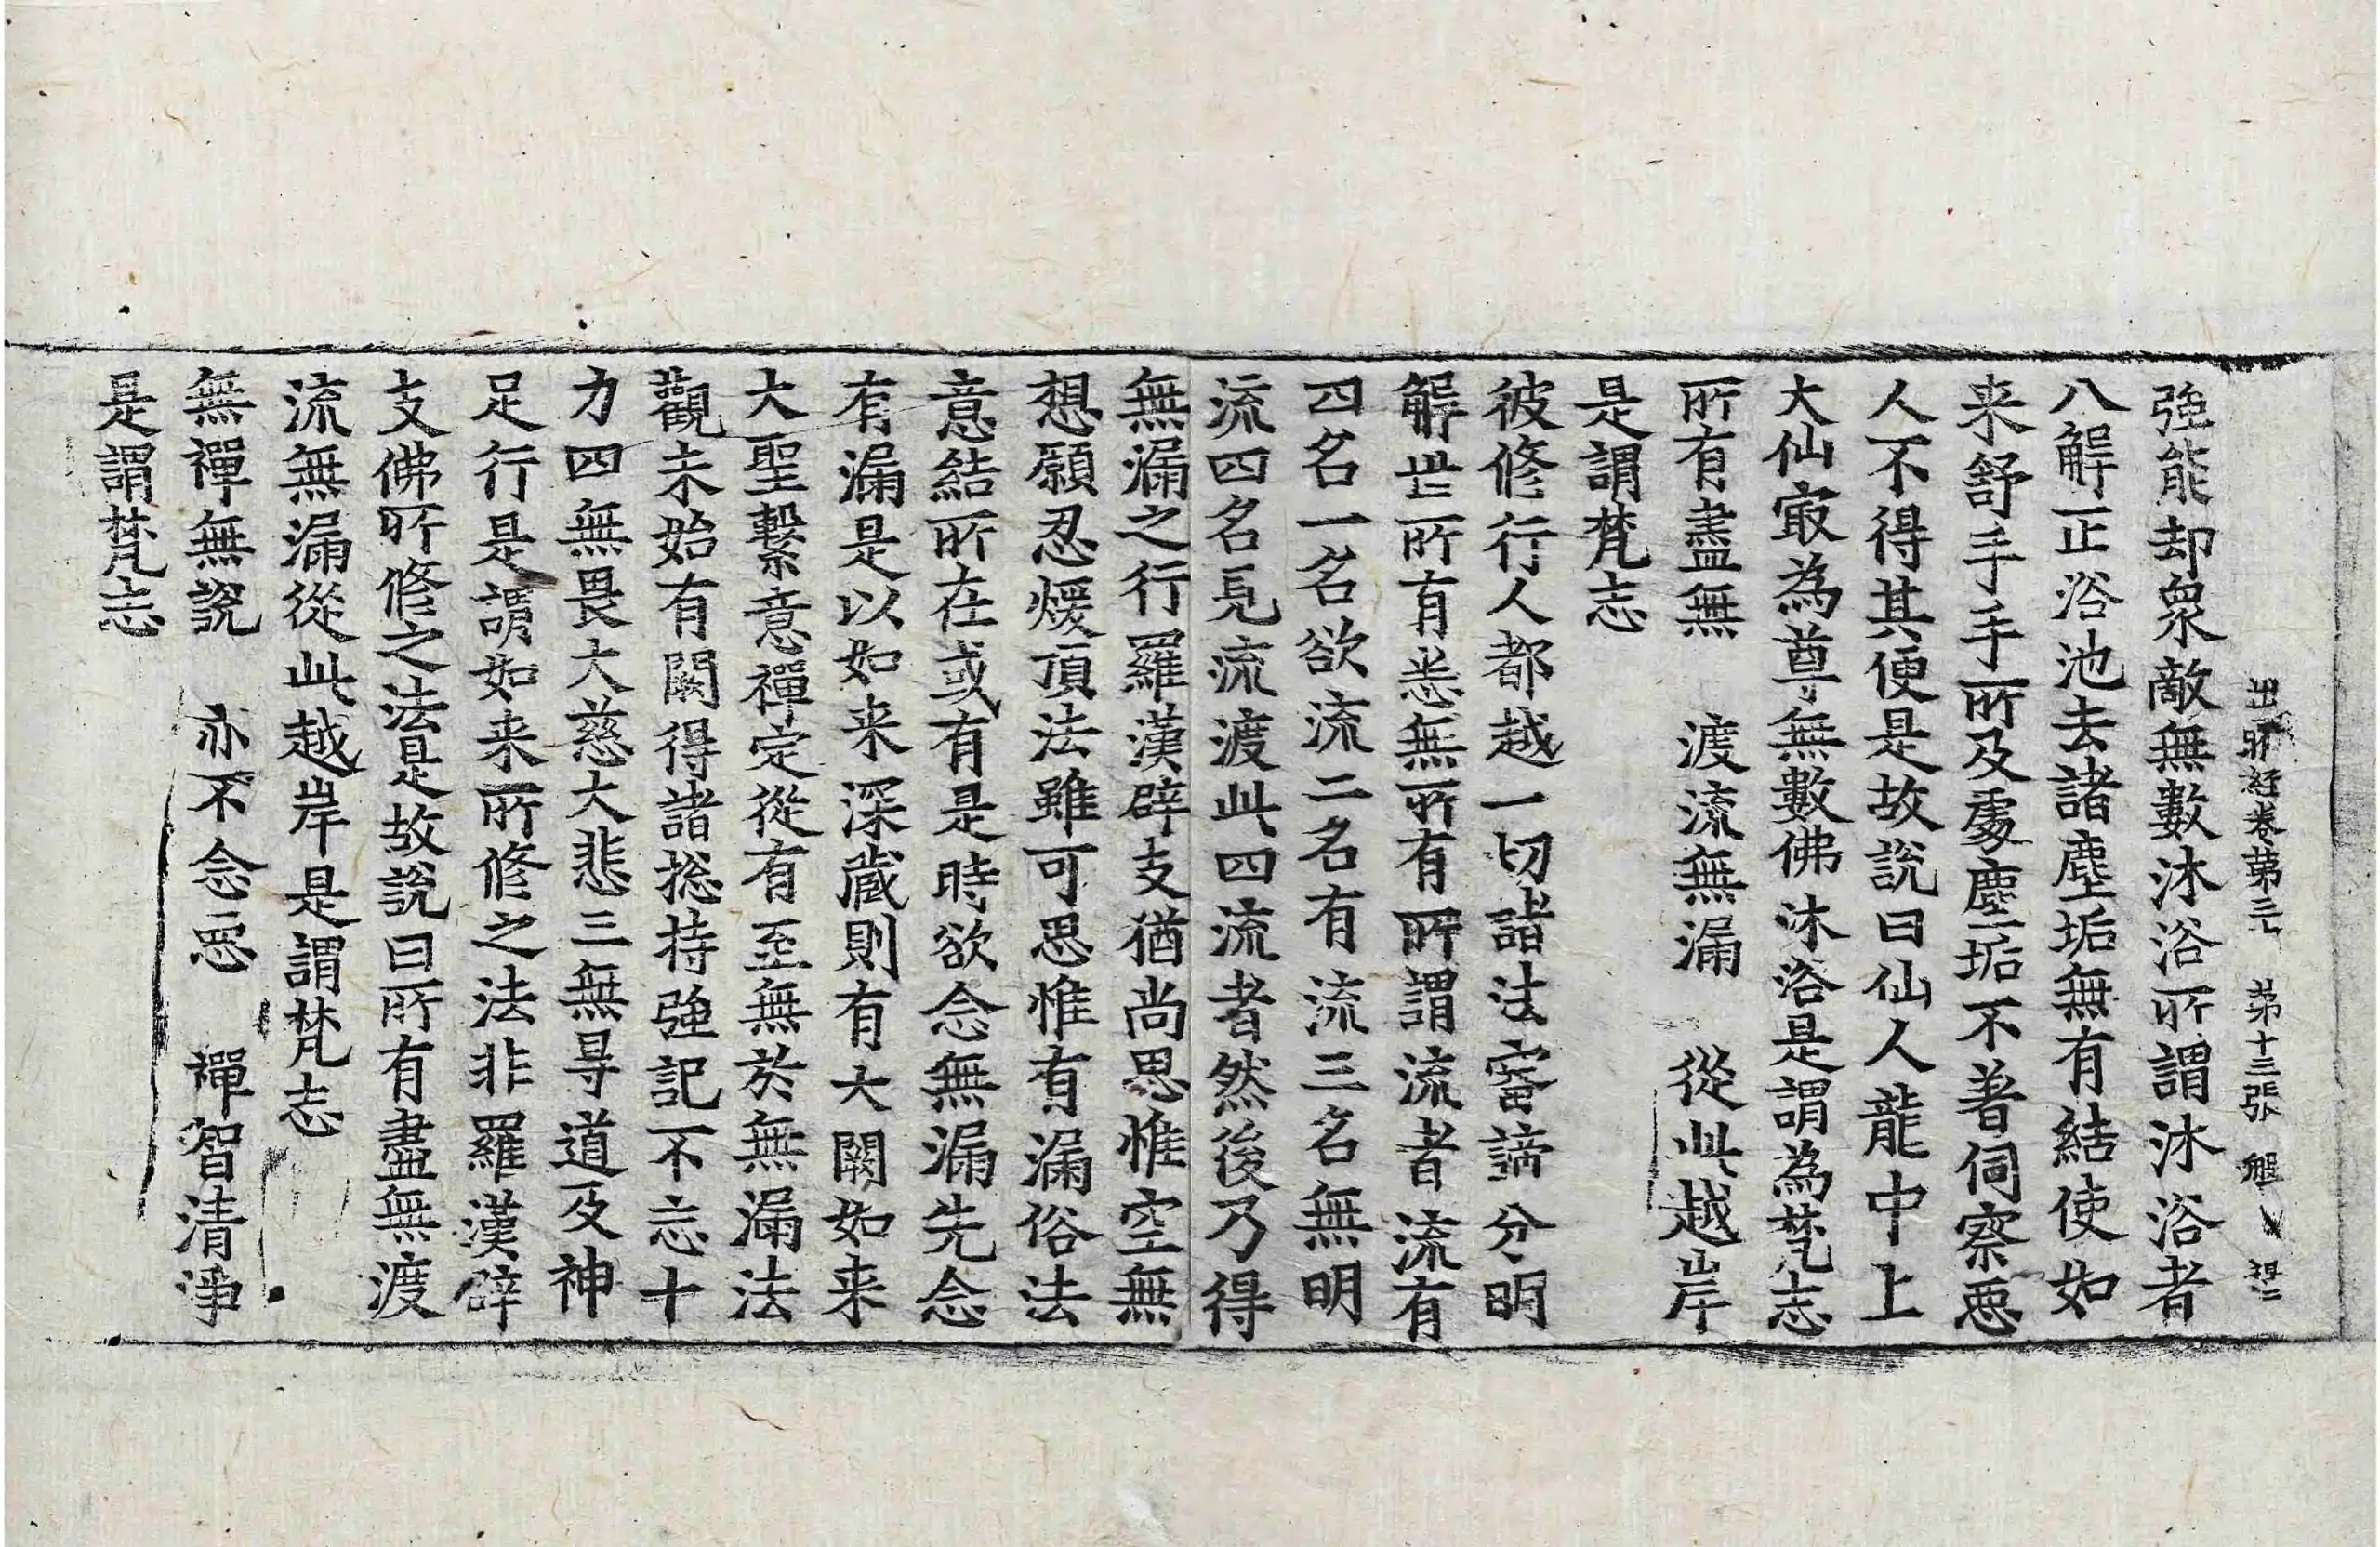 出曜経卷第三十 第十三張
強能却衆敵無數沐浴所謂沐浴者
八解正浴池去諸塵垢無有結使如
来舒手手所及處塵垢不著伺察惡
人不得其便是故説曰仙人龍中上
大仙㝡為尊無數佛沐浴是謂為梵志
所有盡無 渡流無漏 從此越岸
是謂梵志
彼修行人都越一切諸法審諦分明
解世所有悉無所有所謂流者流有
四名一名欲流二名有流三名無明
流四名見流渡此四流者然後乃得
無漏之行羅漢辟支猶尚思惟空無
想願忍煖頂法雖可思惟有漏俗法
意結所在或有是時欲念無漏先念
有漏是以如来深蔵則有大闕如来
大聖繫意禪定從有至無於無漏法
觀未始有闕得諸捴持強記不忘十
力四無畏大慈大悲三無㝵道及神
足行是謂如来所修之法非羅漢辟
支佛所修之法是故説曰所有盡無渡
流無漏從此越岸是謂梵志
無禪無説 亦不念惡 禪智清淨
是謂梵志